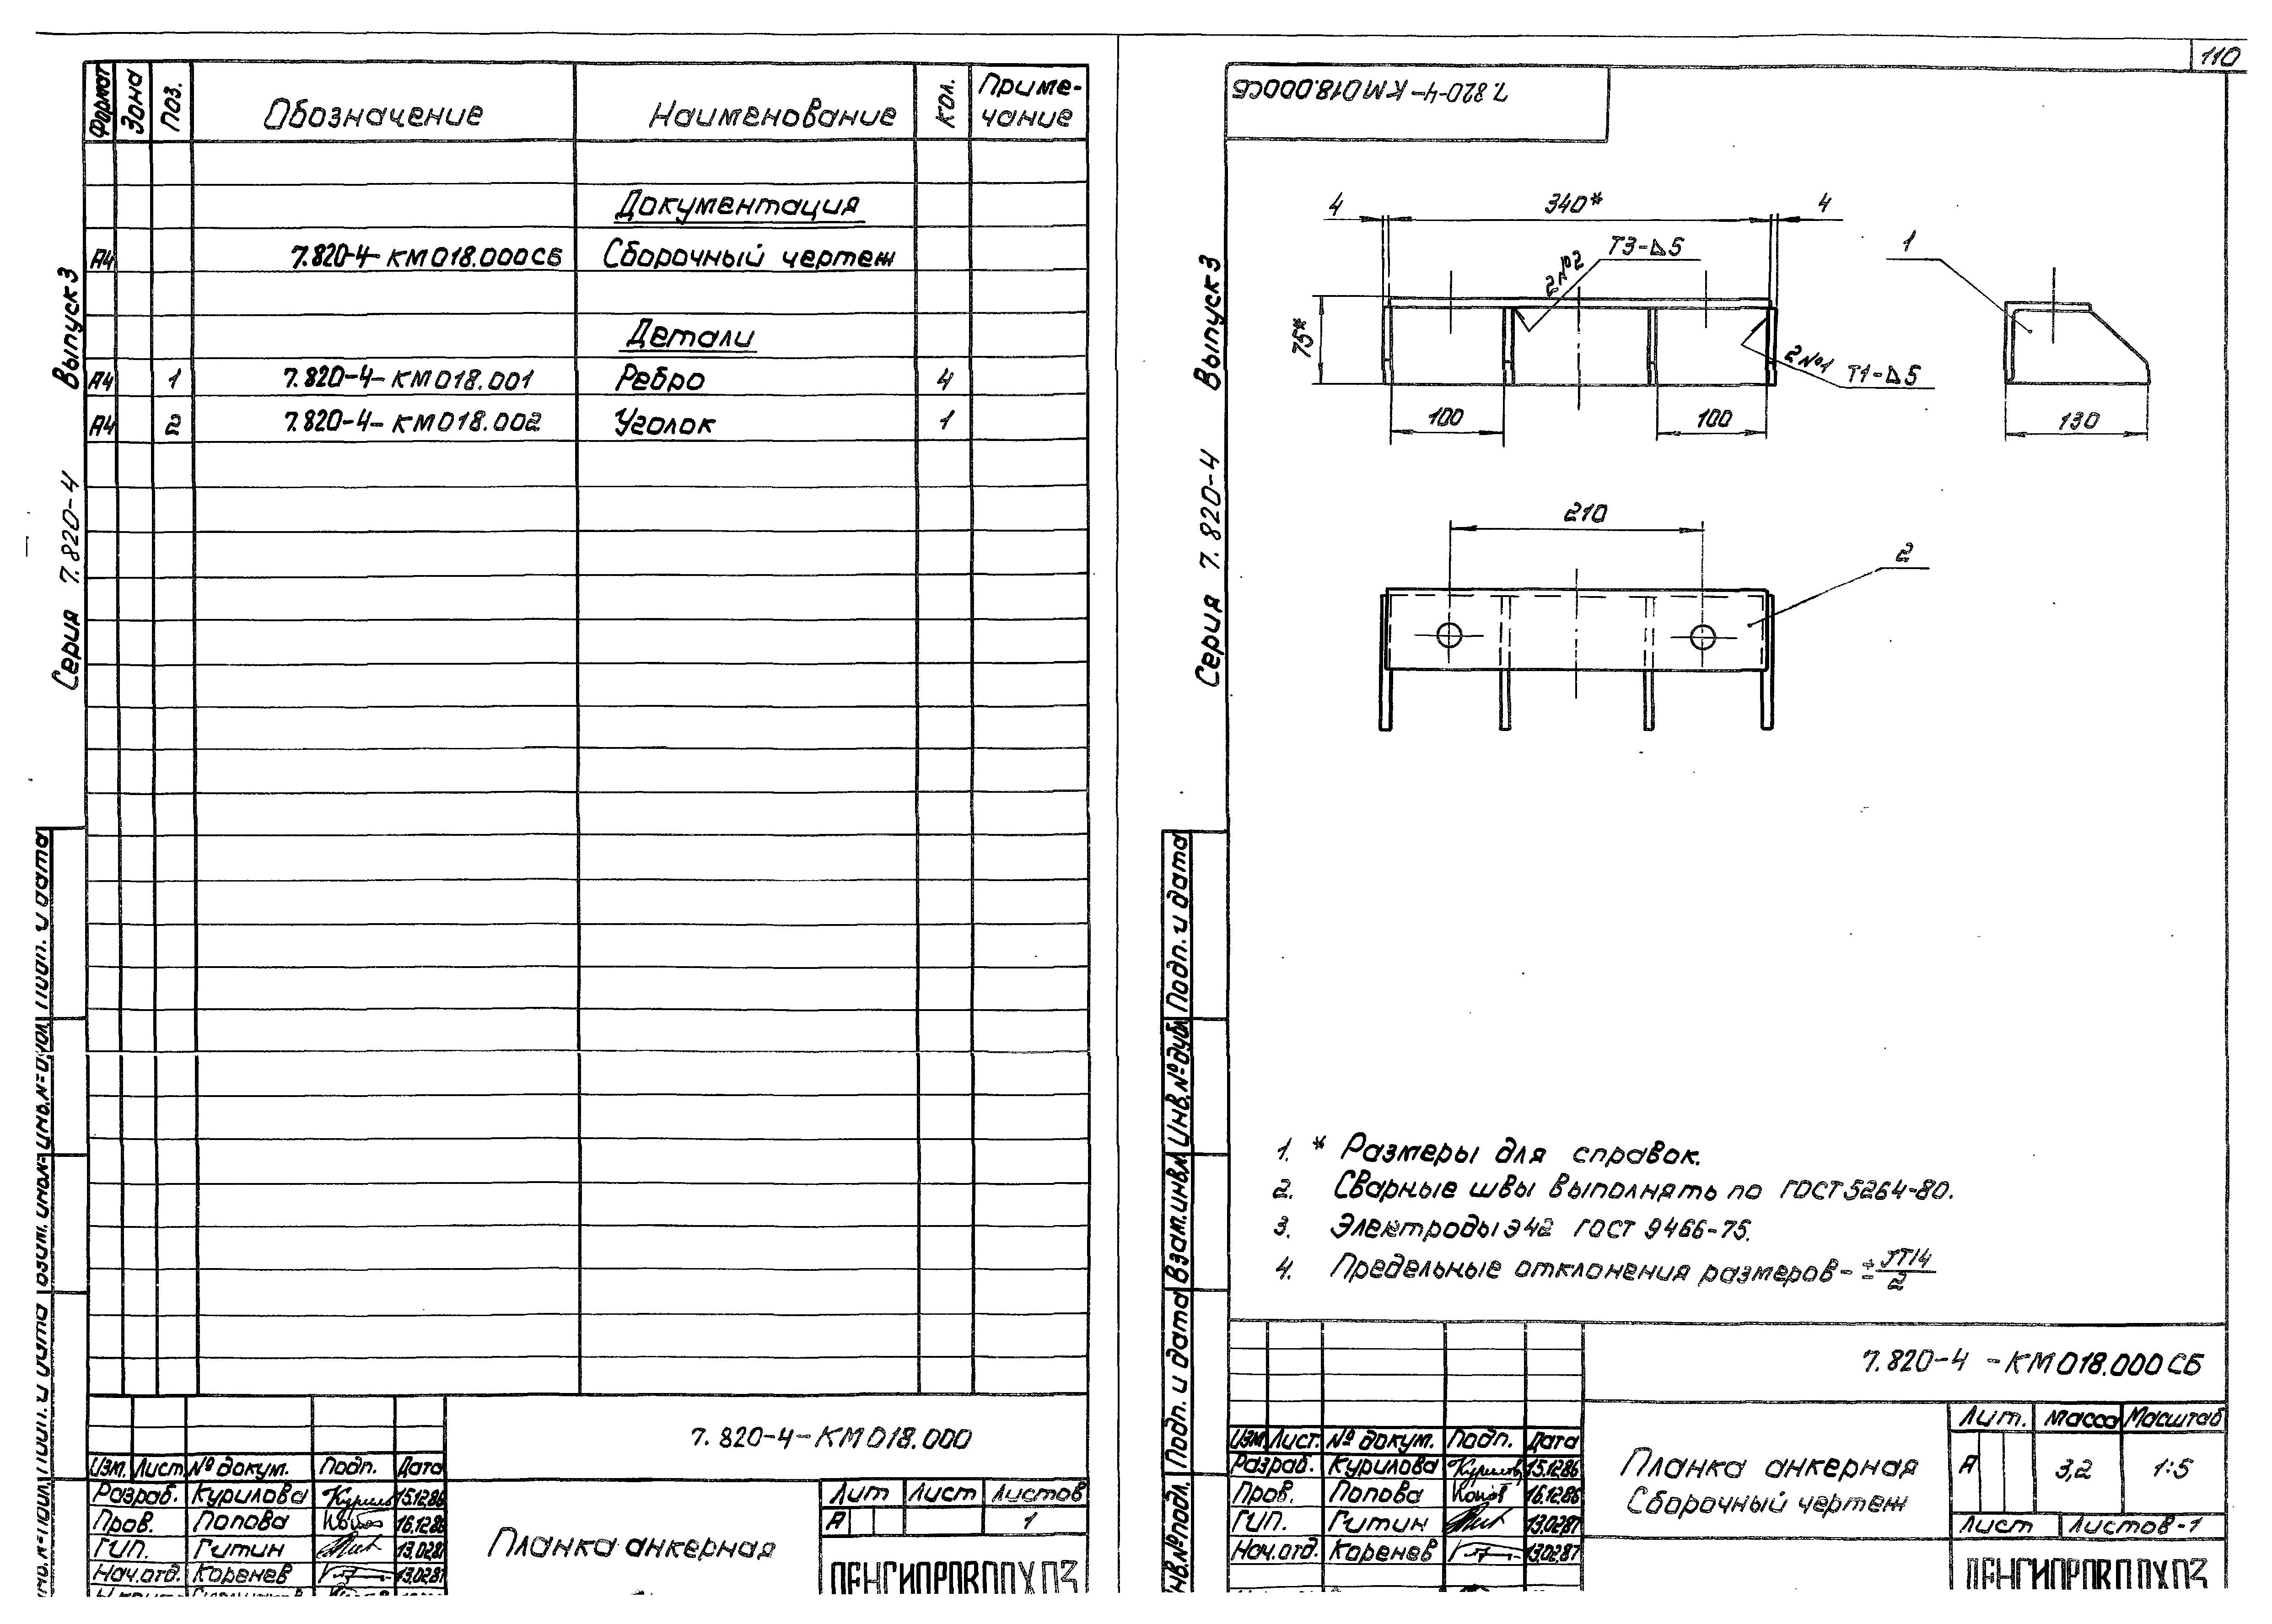 110
Формат Зона Поз. Обозначение Наименование Кол. Приме-
чание
Документация
А4 7.820-4-КМ018.000СБ Сборочный чертеж
Детали
А4 1 7.820-4-КМ018.001 Ребро 4
А4 2 7.820-4-КМ018.002 Уголок 1
Серия 7.820-4 Выпуск 3
Подп. и дата
7.820-4-КМ018.000
Изм. Лист № докум. Подп. Дата
Разраб. Курилова 15.12.86
Пров. Попова 16.12.86
ГИП. Гитин 13.02.87
Нач.отд. Коренев 13.02.87
Планка анкерная
Лит Лист Листов
А 1
ЛЕНГИПРОВОДХОЗ
7.820-4-КМ018.000СБ
Серия 7.820-4 Выпуск 3
4 340* 4
Т3-⊿5
2№2
1
75*
2№1
Т1-⊿5
100 100 130
210
2
1. * Размеры для справок.
2. Сварные швы выполнять по ГОСТ 5264-80.
3. Электроды Э42 ГОСТ 9466-75.
4. Предельные отклонения размеров- ± JT14/2
Подп. и дата
Инв.№дубл.
Взам.инв.№
Подп. и дата
Инв.№подл.
7.820-4-КМ018.000СБ
Изм Лист. № докум. Подп. Дата
Разраб. Курилова 15.12.86
Пров. Попова 16.12.86
ГИП. Гитин 13.02.87
Нач.отд. Коренев 13.02.87
Планка анкерная
Сборочный чертеж
Лит. Масса Масштаб
А 3,2 1:5
Лист Листов-1
ЛЕНГИПРОВОДХОЗ